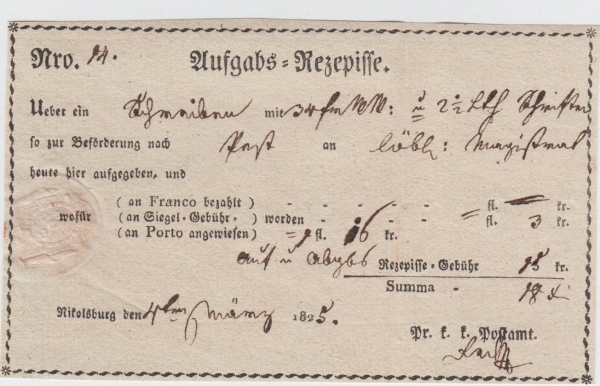 Nro. 14. Aufgabs-Rezepisse.
Ueber ein Schreiben mit 34 f W W: u 2½ Lth Schriften
so zur Beförderung nach Pest an löbl: Magistrat
heute hier aufgegeben, und
(an Franco bezahlt) - - - - fl. — kr.
wofür (an Siegel-Gebühr-) worden - - - = fl. 3 kr.
(an Porto angewiesen) = fl. 16 kr.
Auf u Abgbs Rezepisse-Gebühr 15 kr.
Summa - 18 x
Nikolsburg den 4ten März 1825.
Pr. k. k. Postamt.